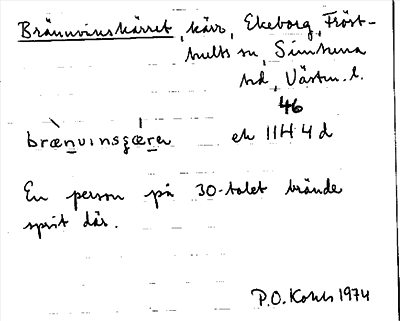 Brännvinskärret, kärr, Ekeborg, Fröst-
hults sn, Simtuna
hd, Västm. l.
46
brænvinsçæreṛ ek 11H 4 d
En person på 30-talet brände
sprit där.
P.O. 1974